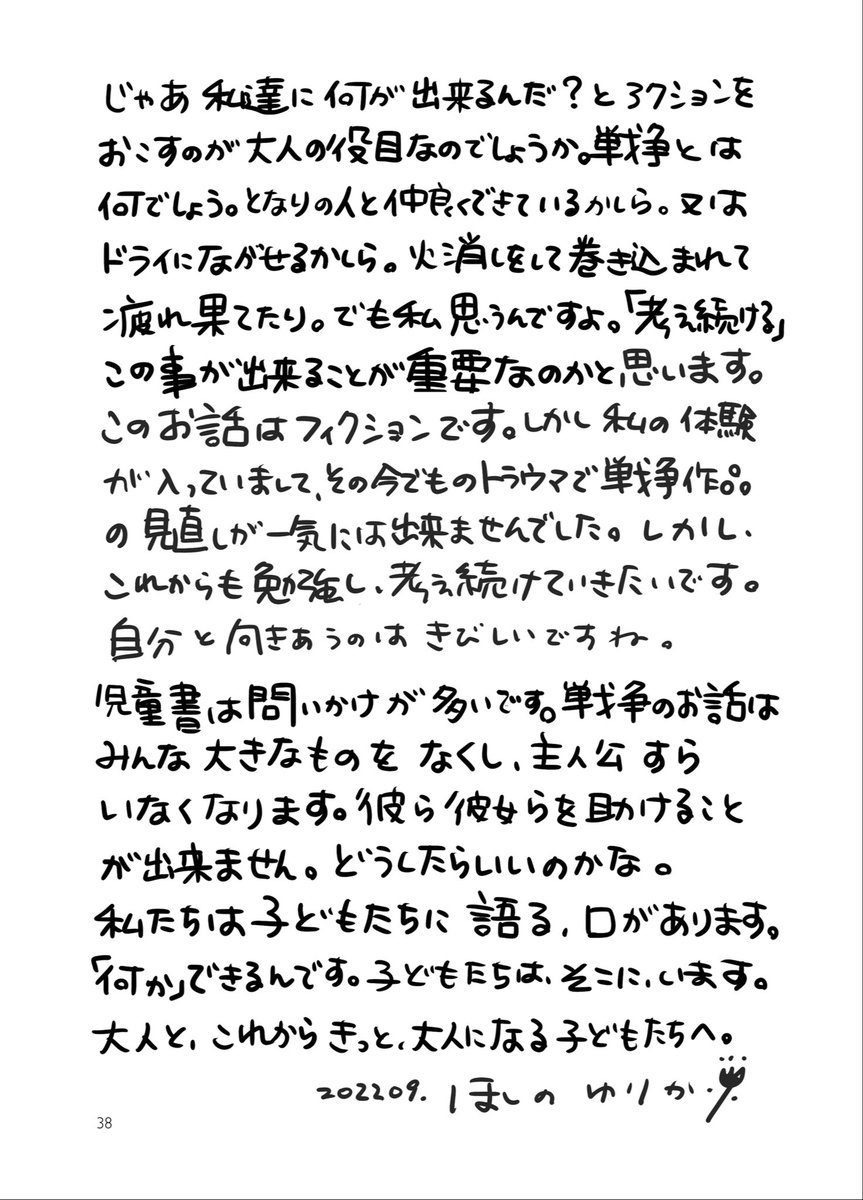 じゃあ私達に何が出来るんだ？とアクションを
おこすのが大人の役目なのでしょうか。戦争とは
何でしょう。となりの人と仲良くできているかしら。又は
ドライにながせるかしら。火消しをして巻き込まれて
疲れ果てたり。でも私思うんですよ。「考え続ける」
この事が出来ることが重要なのかと思います。
このお話はフィクションです。しかし私の体験
が入っていまして、その今でものトラウマで戦争作品
の見直しが一気には出来ませんでした。しかし、
これからも勉強し、考え続けていきたいです。
自分と向きあうのはきびしいですね。
児童書は問いかけが多いです。戦争のお話は
みんな大きなものをなくし、主人公すら
いなくなります。彼ら彼女らを助けること
が出来ません。どうしたらいいのかな。
私たちは子どもたちに語る、口があります。
「何か」できるんです。子どもたちは、そこに、います。
大人と、これからきっと、大人になる子どもたちへ。
202209. ほしのゆりか
38